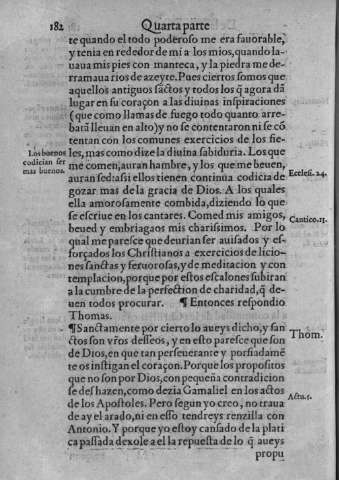 182 Quarta parte
te quando el todo poderoso me era fauorable,
y tenia en rededor de mi a los mios, quando la-
uaua mis pies con manteca, y la piedra me de-
rramaua rios de azeyte. Pues ciertos somos que
aquellos antiguos sãctos y todos los q̃ agora dã
lugar en su coraçon a las diuinas inspiraciones
(que como llamas de fuego todo quanto arre-
batã lleuan en alto) y no se contentaron ni se cõ
tentan con los comunes exercicios de los fie-
Los buenos
codician ser
mas buenos.
les, mas como dize la diuina sabiduria. Los que
me comen, auran hambre, y los que me beuen,
auran sed: assi ellos tienen continua codicia de
Eccles. 24.
gozar mas de la gracia de Dios. A los quales
ella amorosamente combida, diziendo lo que
se escriue en los cantares. Comed mis amigos,
beued y embriagaos mis charissimos. Por lo
Cantico. 15.
qual me paresce que deurian ser auisados y es-
forçados los Christianos a exercicios de licio-
nes sanctas y feruorosas, y de meditacion y con
templacion, porque por estos escalones subiran
a la cumbre de la perfection de charidad, q̃ de-
uen todos procurar. ¶ Entonces respondio
Thomas.
¶ Sanctamente por cierto lo aueys dicho, y san
Thom.
ctos son vr̃os desseos, y en esto paresce que son
de Dios, en que tan perseuerante y porfiadamẽ
te os instigan el coraçon. Porque los propositos
que no son por Dios, con pequeña contradicion
se deshazen, como dezia Gamaliel en los actos
Actu. 5.
de los Apostoles. Pero segun yo creo, no traua
de ay el arado, ni en esso tendreys renzilla con
Antonio. Y porque yo estoy cansado de la plati
ca passada dexole a el la repuesta de lo q̃ aueys
propu